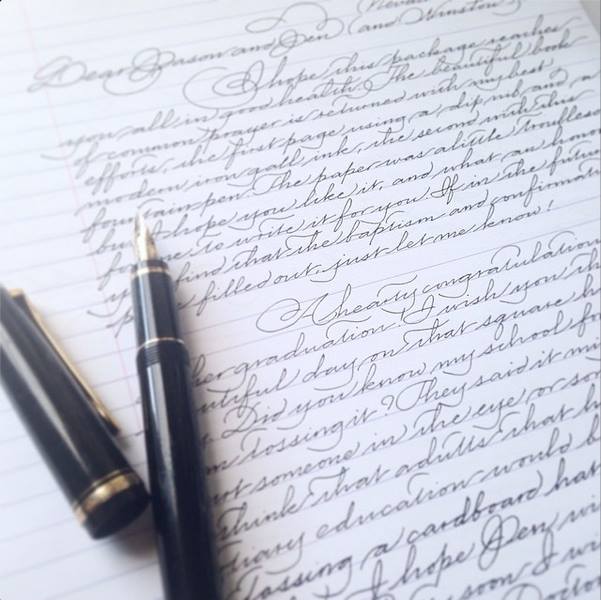 Nevad
Dear Jason and Jen (and Winston)
I hope this package reaches
you all in good health. The beautiful book
of common prayer is returned with my best
efforts, the first page using a dip nib and a
modern iron gall ink, the second with this
fountain pen. The paper was a little troubleso
but I hope you like it, and what an honor
for me to write it for you. If in the future
y find that the baptism and confirmatio
filled out, just let me know!
A hearty congratulation
her graduation! I wish you th
utiful day on that square ha
Did you know my school fo
m tossing it? They said it mi
ut someone in the eye or som
think that adults that h
tiary education would b
tossing a cardboard hat
I hope Jen wi
soon I wi
Docto